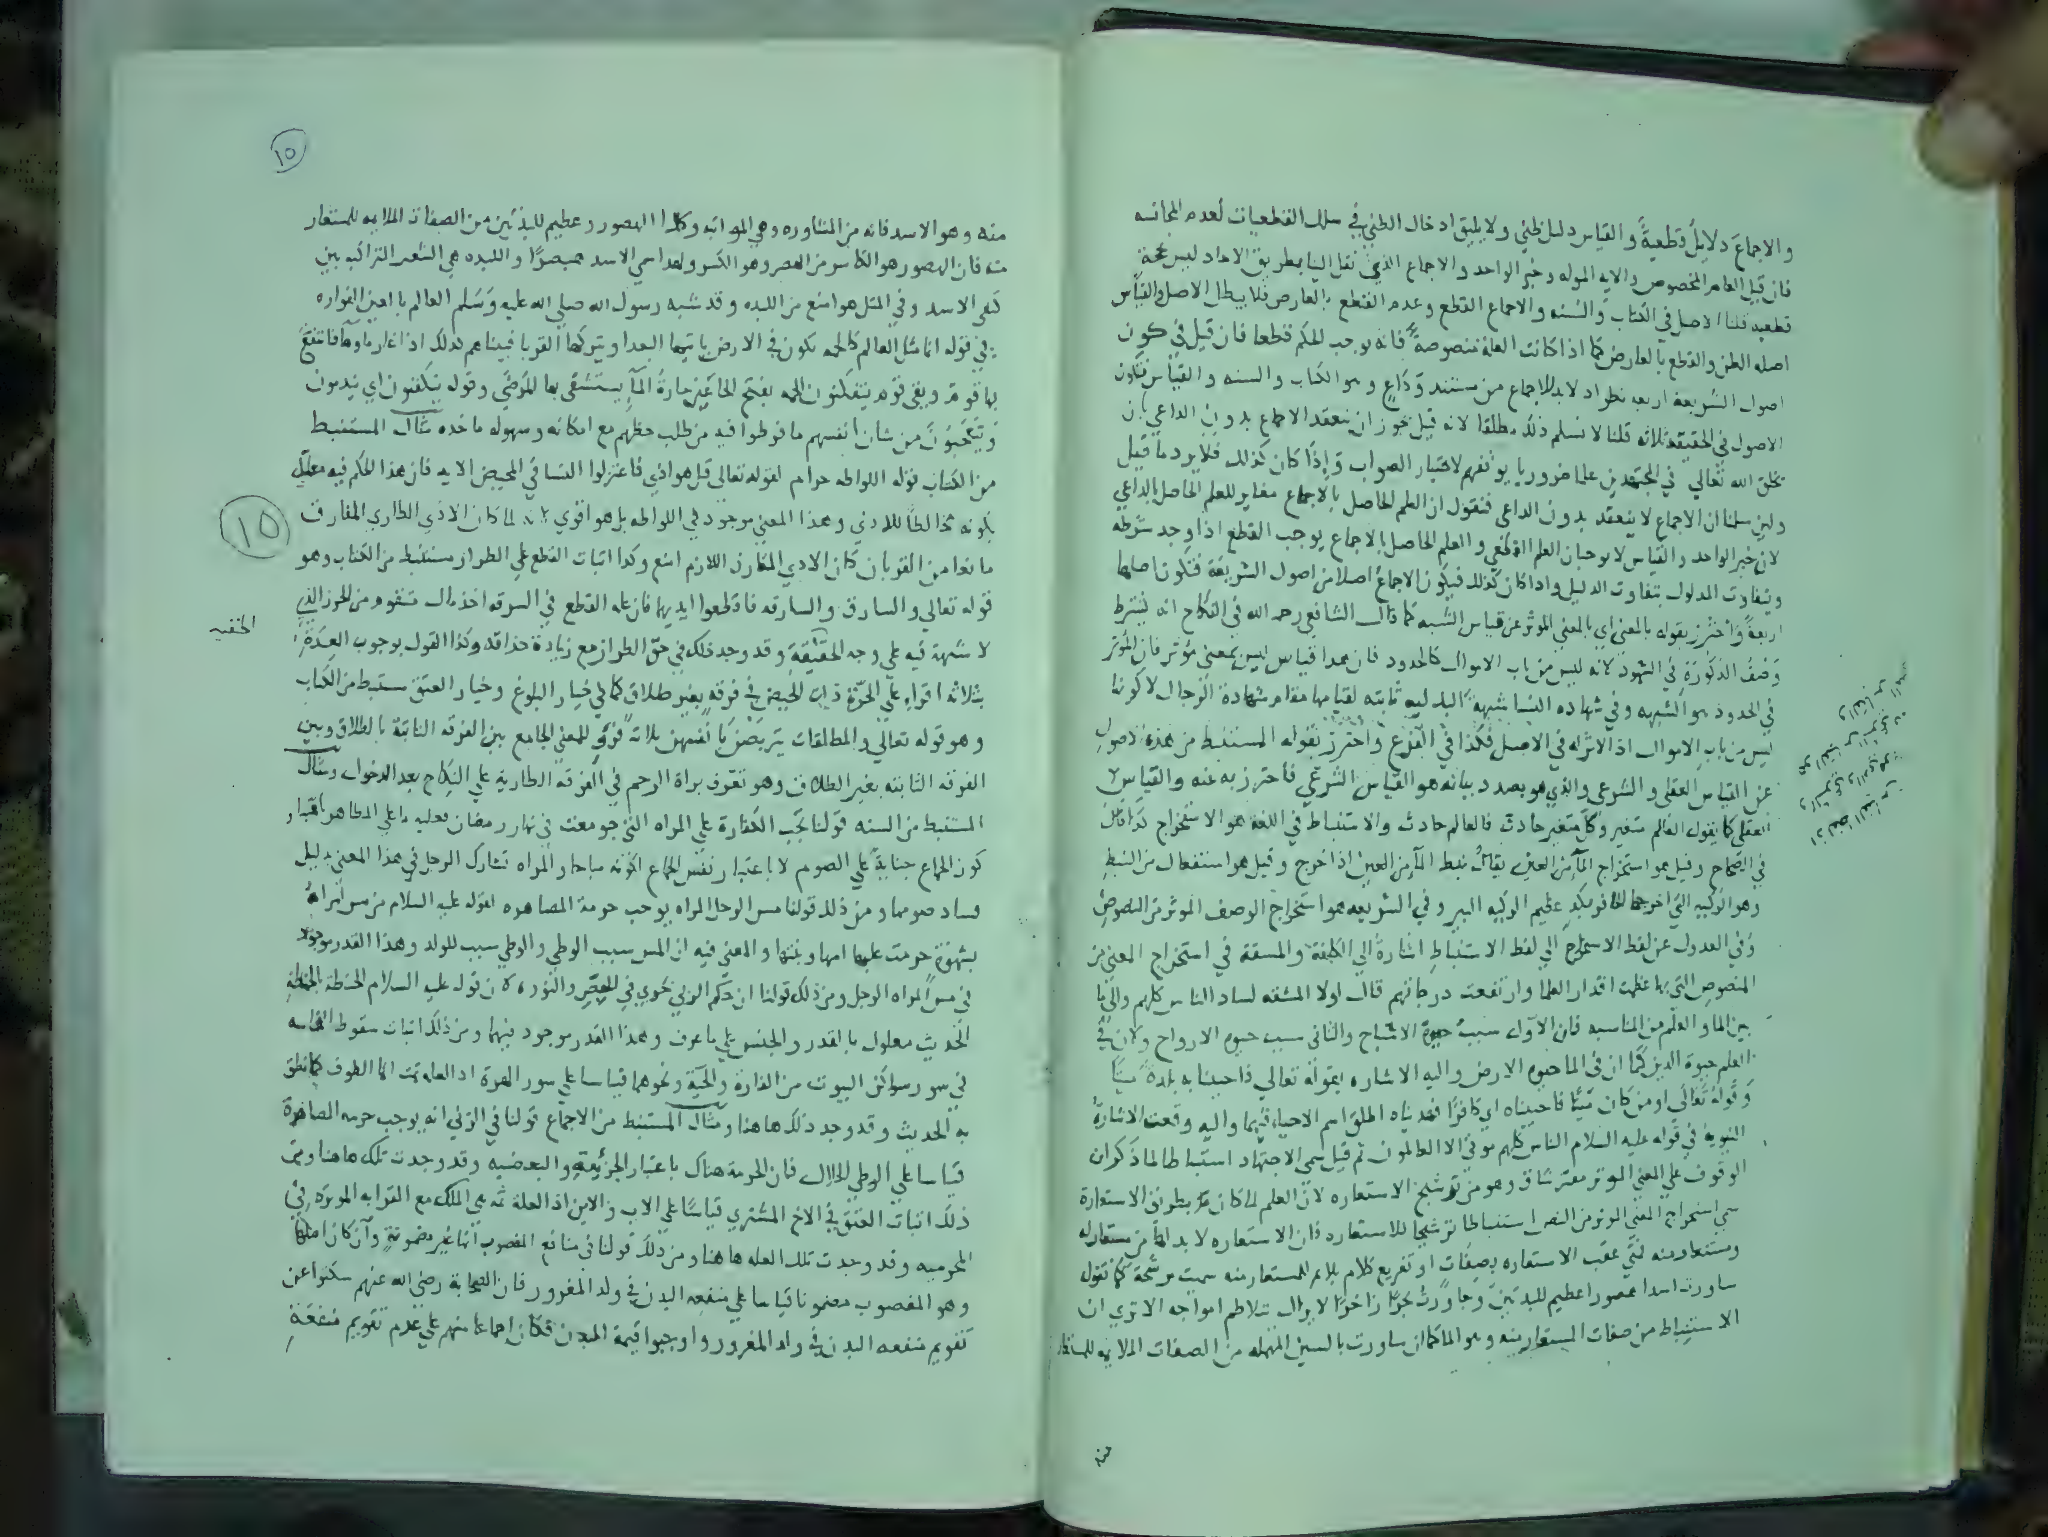 والاجماع دلايل قطعية والقياس دليل ظني ولا يليق ادخال الظني في سلك القطعيات لعدم المجانسه
فان قيل العام المخصوص والايه الموله وخبر الواحد والاجماع الذي نقل الينا بطريق الاحاد ليس بحجة
قطعيه قلنا الاصل في الكتاب والسنه والاجماع القطع وعدم القطع بالعارض فلا يبطل الاصل والقياس
اصله الظن والقطع بالعارض كما اذا كانت العلة منصوصة فانه يوجب الحكم قطعا فان قيل في كون
اصول الشريعة اربعه نظر اذ لابد للاجماع من مستند وداع وهو الكتاب والسنه والقياس فتكون
الاصول في الحقيقة ثلاثه قلنا لا نسلم ذلك مطلقا لانه قيل يجوز ان ينعقد الاجماع بدون الداعي بان
يخلق الله تعالي في المجتهدين علما ضروريا يوفقهم لاختيار الصواب واذا كان كذلك فلا يرد ما قيل
ولئن سلمنا ان الاجماع لا ينعقد بدون الداعي فنقول ان العلم الحاصل بالاجماع مغاير للعلم الحاصل بالداعي
لان خبر الواحد والقياس لا يوجبان العلم القطعي والعلم الحاصل بالاجماع يوجب القطع اذا وجد شرطه
ويتفاوت المدلول بتفاوت الدليل واذا كان كذلك فيكون الاجماع اصلا من اصول الشريعة فتكون اصلها
اربعة واحترز بقوله بالمعني اي بالمعني الموثر عن قياس الشبه كما قال الشافعي رحمه الله في النكاح انه يشترط
وصف الذكورة في الشهود لانه ليس من باب الاموال كالحدود فان هذا قياس ليس بمعني مؤثر فان المؤثر
في الحدود هو الشبهه وفي شهاده النسا شبهة البدليه ثابته لقيامها مقام شهادة الرجال لا كونها
ليس من باب الاموال اذ لا اثر له في الاصل فكذا في الفرع واحترز بقوله المستنبط من هذه الاصول
عن القياس العقلي والشرعي والذي هو بصدد بيانه هو القياس الشرعي فاحترز به عنه والقياس
العقلي كما يقول العالم متغير وكل متغير حادث فالعالم حادث والاستنباط في اللغه هو الاستخراج كذا قال
في الصحاح وقيل هو استخراج الماء من العين يقال نبط الماء من العين اذا خرج وقيل هو استفعال من النبط
وهو الركيه التي اخرجها الحافر عظيم الركيه البير وفي الشريعه هو استخراج الوصف الموثر من النصوص
وفي العدول عن لفظ الاستخراج الي لفظ الاستنباط اشارة الي الكلفة والمشقة في استخراج المعني من
المنصوص التي بها عظمت اقدار العلما وارتفعت درجاتهم قال لولا المشقه لساد الناس كلهم والي ما
بين الما والعلم من المناسبه فان الاول سبب حيوة الاشباح والثاني سبب حيوه الارواح ولان في
العلم حيوة الدين كما ان في الما حيوه الارض واليه الاشاره بقوله تعالي فاحيينا به بلدة ميتا
وقوله تعالي اومن كان ميتا فاحييناه اي كافرا فهديناه اطلق اسم الاحياء فيهما واليه وقعت الاشارة
النبوية في قوله عليه السلام الناس كلهم موتي الا العالمون ثم قيل سمي الاجتهاد استنباطا لما ذكر ان
الوقوف علي المعني الموثر متعسر شاق وهو من ترشيح الاستعاره لان العلم لما كان بطريق الاستعارة
سمي استخراج المعني الموثر من النص استنباطا ترشيحا للاستعاره فان الاستعاره لا بد لها من مستعار له
ومستعار منه فمتي عقب الاستعاره بصفات او تفريع كلام يلايم المستعار منه سميت مرشحة كما تقول
ساورت اسدا هصورا عظيم اللبدتين وجاورت بحرا زاخرا لا يزال تتلاطم امواجه الا تري ان
الاستنباط من صفات المستعار منه وهو الما كما ان ساورت بالسين المهمله من الصفات الملايمه للمستعار
منه
١٥
منه وهو الاسد فانه من المشاوره وهي المواثبه وكذا الهصور وعظيم اللبدتين من الصفات الملايمه للمستعار
منه فان الهصور هو الكاسر من الهصر وهو الكسر ولهذا سمي الاسد هيصورا واللبده هي الشعر المتراكب بين
كتفي الاسد وفي المثل هو امنع من اللبده وقد شبه رسول الله صلي الله عليه وسلم العالم بالعين الفواره
في قوله انما مثل العالم كالحمه تكون في الارض ياتيها البعدا ويتركها القربا فبيناهم كذلك اذا غار ماوها فانتفع
بها قوم وبقي قوم يتفكنون الحمه بفتح الحا عين حارة الماء يستشفي بها المرضي وقوله يتفكنون اي يندمون
ويتعجبون من شان انفسهم ما فرطوا فيه من طلب حظهم مع امكانه وسهوله ماخذه مثال المستنبط
من الكتاب قوله اللواطه حرام لقوله تعالي قل هو اذي فاعتزلوا النسا في المحيض الايه فان هذا الحكم فيه معلل
بكونه مخالطا للاذي وهذا المعني موجود في اللواطه بل هو اقوي لانه لما كان الاذي الطاري المفارق
١٥
مانعا من القربان كان الاذي المقارن اللازم امنع وكذا اثبات القطع علي الطرار مستنبط من الكتاب وهو
قوله تعالي والسارق والسارقه فاقطعوا ايديهما فان علة القطع في السرقه اخذ مال متقوم من الحرز الذي
لا شبهة فيه علي وجه الخفية وقد وجد ذلك في حق الطرار مع زيادة حذاقه وكذا القول بوجوب العدة
الخفيه
بثلاثه اقراء علي الحرة ذات الحيض في فرقه بغير طلاق كما في خيار البلوغ وخيار العتق مستنبط من الكتاب
وهو قوله تعالي والمطلقات يتربصن بانفسهن ثلاثة قروء للمعني الجامع بين الفرقه الثابتة بالطلاق وبين
الفرقه الثابته بغير الطلاق وهو تعرف براة الرحم في الفرقه الطارية علي النكاح بعد الدخول ومثال
المستنبط من السنه قولنا تجب الكفارة علي المراه التي جومعت في نهار رمضان فعليه ما علي المظاهر باعتبار
كون الجماع جناية علي الصوم لا باعتبار نفس الجماع لكونه مباحا والمراه تشارك الرجل في هذا المعني بدليل
فساد صومها ومن ذلك قولنا مس الرجل المراه يوجب حرمة المصاهره لقوله عليه السلام من مس امراة
بشهوة حرمت عليه امها وبنتها والمعني فيه ان المس سبب الوطي والوطي سبب للولد وهذا القدر موجود
في مس المراه الرجل ومن ذلك قولنا ان حكم الربي يجري في الجص والنوره لان قوله عليه السلام الحنطة بالحنطة
الحديث معلول بالقدر والجنس علي ما عرف وهذا القدر موجود فيهما ومن ذلك اثبات سقوط النجاسه
في سور سواكن البيوت من الفارة والحية ونحوهما قياسا علي سور الهرة اذ العله ثمت انما الطوف كما نطق
به الحديث وقد وجد ذلك هاهنا ومثال المستنبط من الاجماع قولنا في الزني انه يوجب حرمه المصاهرة
قياسا علي الوطي الحلال فان الحرمة هناك باعتبار الجزئية والبعضيه وقد وجدت تلك هاهنا ومن
ذلك اثبات العتق في الاخ المشتري قياسا علي الاب والابن اذ العلة ثمه هي الملك مع القرابه الموثره في
المحرميه وقد وجدت تلك العله هاهنا ومن ذلك قولنا في منافع المغصوب انها غير مضمونة وان كان اصلها
وهو المغصوب مضمونا قياسا علي منفعه البدن في ولد المغرور فان الصحابة رضي الله عنهم سكتوا عن
تقويم منفعه البدن في ولد المغرور واوجبوا قيمة البدن فكان اجماعا منهم علي عدم تقويم منفعة